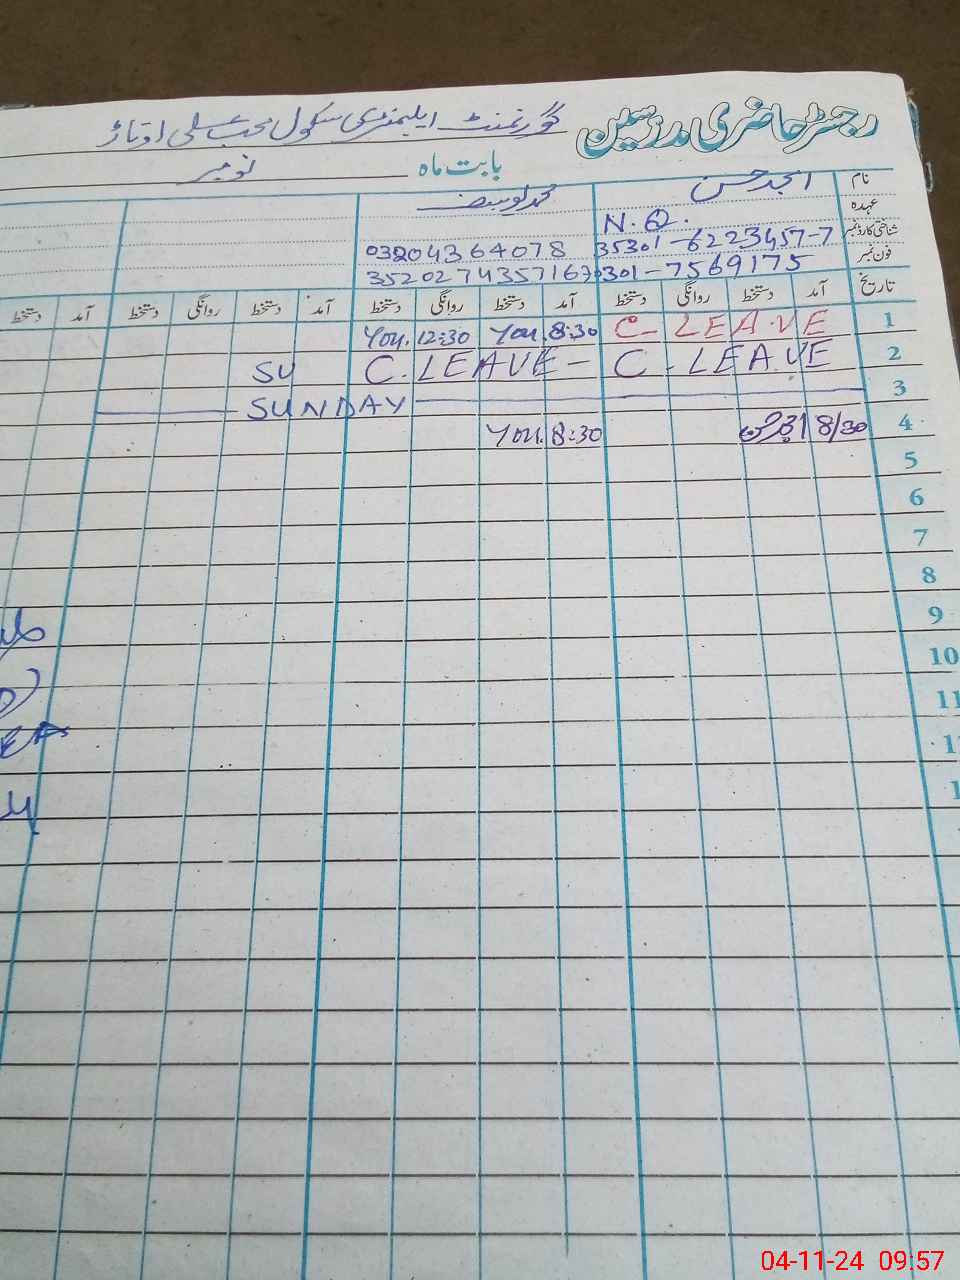 رجسٹر حاضری مدرسین گورنمنٹ ایلیمنٹری سکول محب علی اوتاڑ
بابت ماہ نومبر
نام امجد حسن محمد یوسف
عہدہ N.Q.
شناختی کارڈ نمبر 35301-6223457-7 03204364078
فون نمبر 0301-7569175 3520274357167
تاریخ آمد دستخط روانگی دستخط آمد دستخط روانگی دستخط آمد دستخط روانگی دستخط آمد دستخط
1 C- LEAVE 8:30 You. 12:30 You.
2 C. LEAVE C. LEAVE - SU
3 SUNDAY
4 8/30 امجد حسن 8:30 You.
5
6
7
8
9
10
11
1
1
04-11-24 09:57